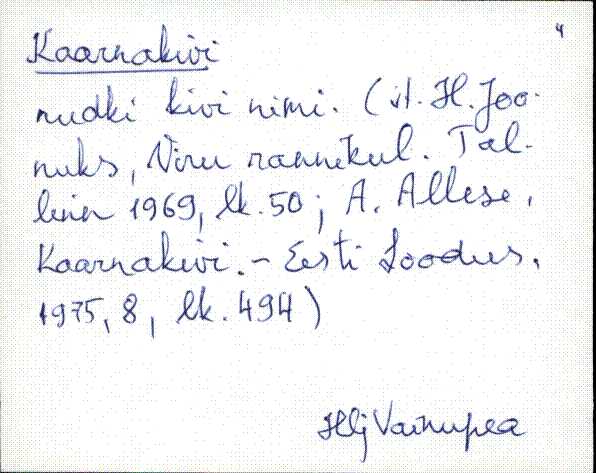 4
Kaarnakivi
mudki kivi nimi. (vt. H. Joo-
nuks, Viru rannikul. Tal-
linn 1969, lk. 50; A. Allese,
Kaarnakivi. - Eesti Loodus,
1975, 8, lk. 494)
Hlj Vainupea